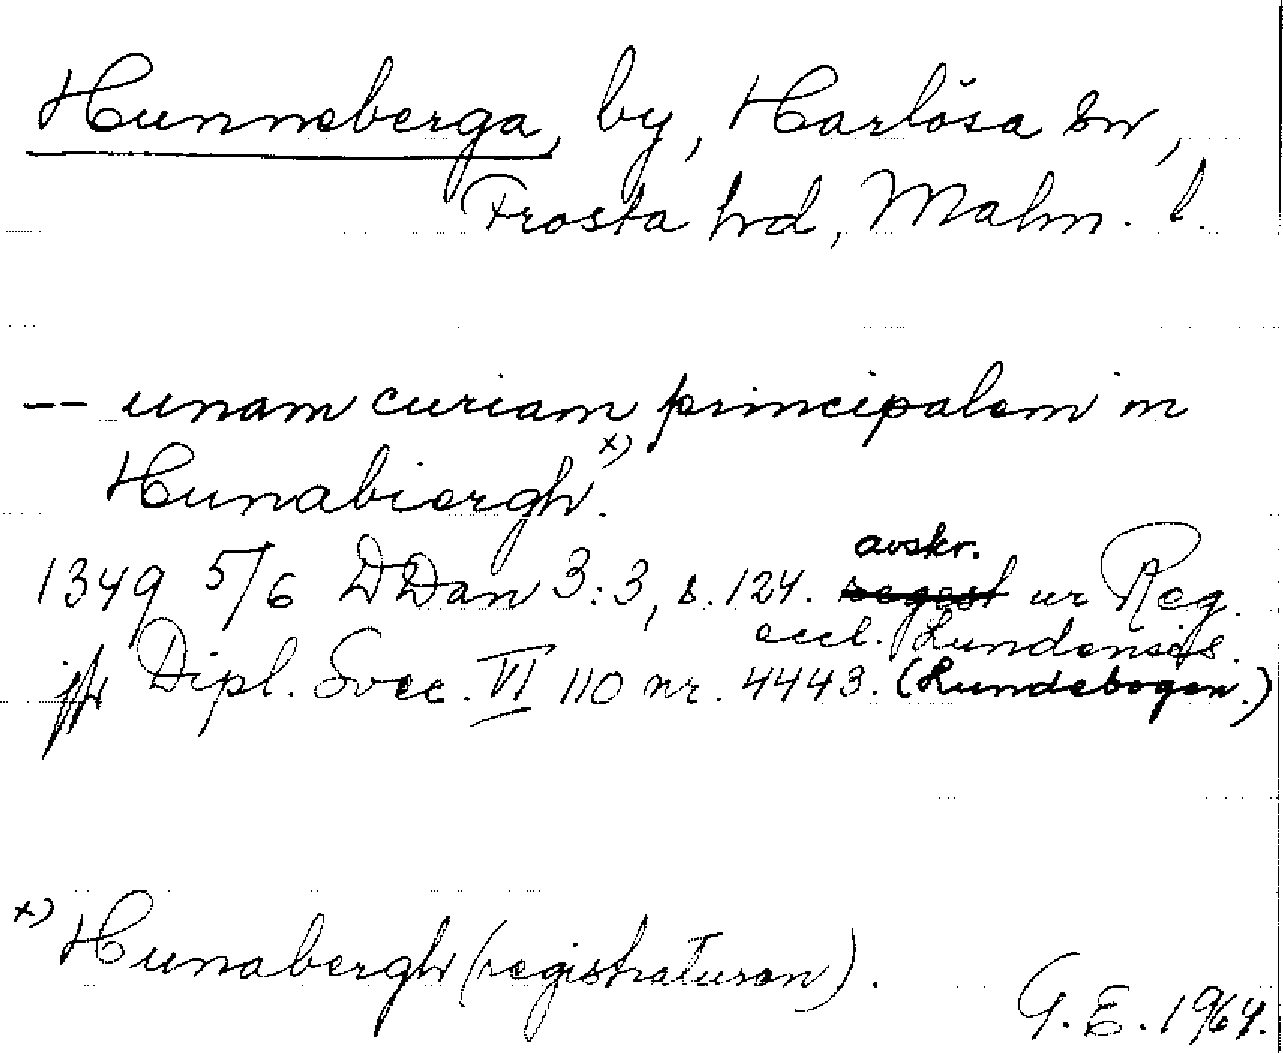 Hunneberga, by, Harlösa sn,
Frosta hrd, Malm. l.
-- unam curiam principalem in
Hunabiergh x).
1349 5/6 DDan 3:3, s. 124. regest avskr. ur Reg.
eccl. Lundensis.
jfr Dipl. Svec. VI 110 nr. 4443. (Lundebogen.)
x) Hunabergh (registraturen).
G. E. 1964.